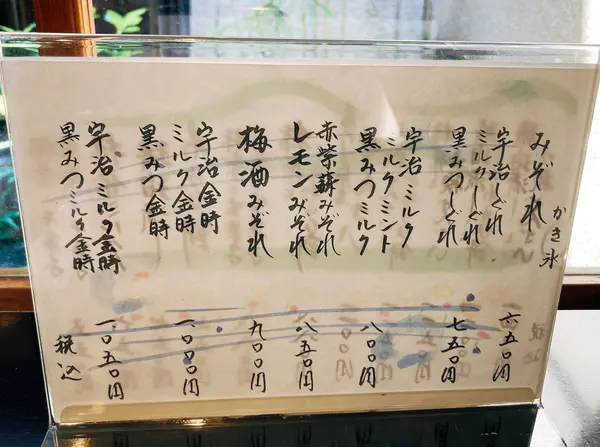 かき氷
みぞれ 六五〇円
宇治しぐれ
ミルクしぐれ
黒みつしぐれ 七五〇円
宇治ミルク
ミルクミント
黒みつミルク 八〇〇円
赤紫蘇みぞれ
レモンみぞれ 八五〇円
梅酒みぞれ 九〇〇円
宇治金時
ミルク金時
黒みつ金時 一、〇〇〇円
宇治ミルク金時
黒みつミルク金時 一、〇五〇円
税込